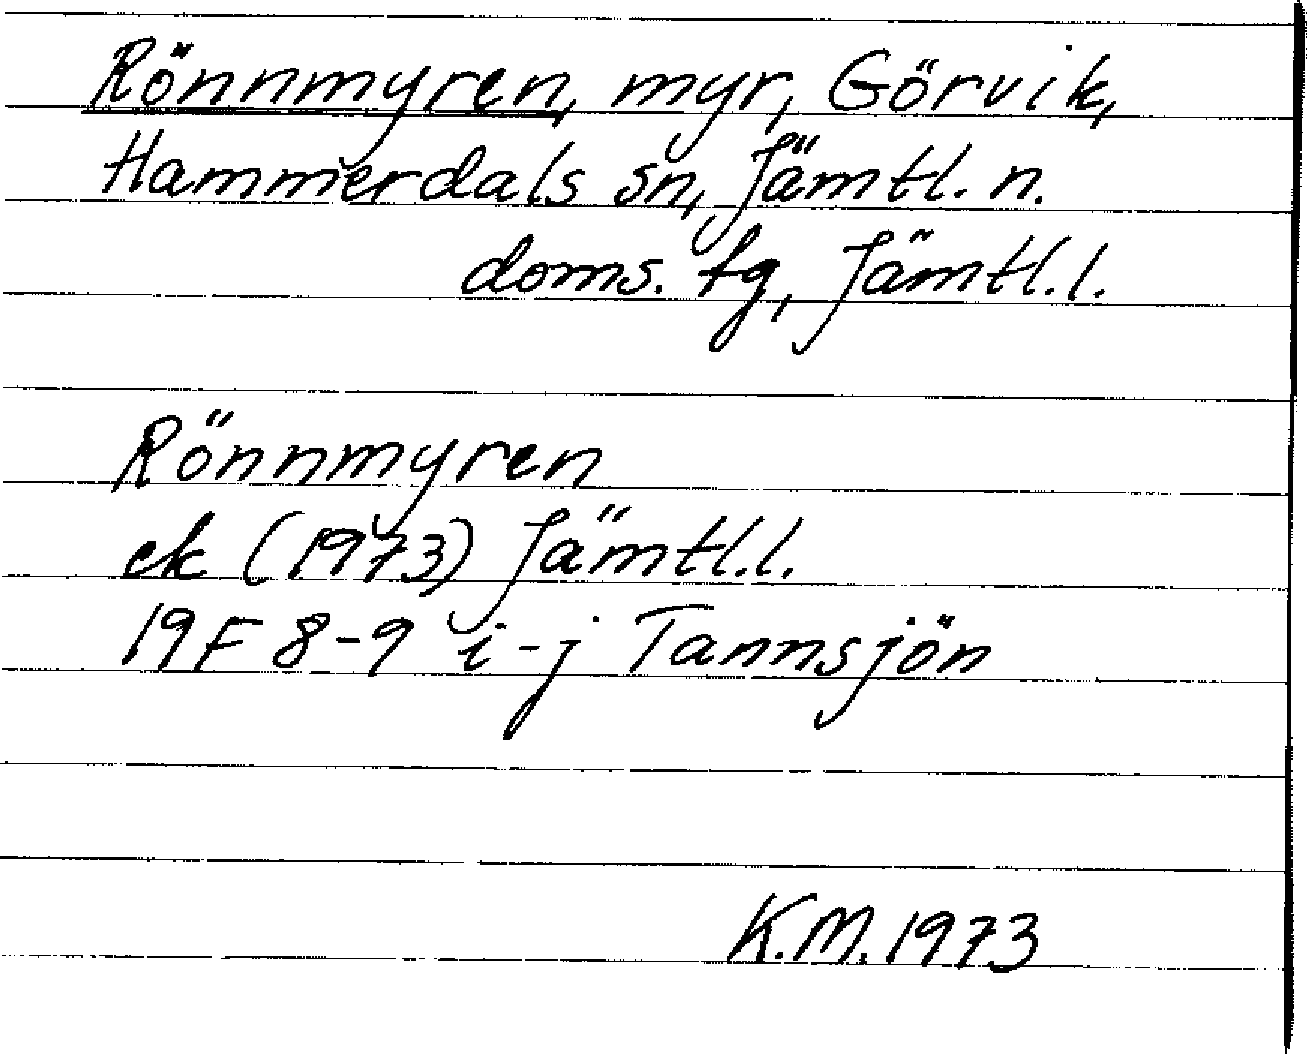 Rönnmyren, myr, Görvik,
Hammerdals sn, Jämtl. n.
doms. tg, Jämtl. l.
Rönnmyren
ek (1973) Jämtl. l.
19F 8-9 i-j Tannsjön
K.M. 1973